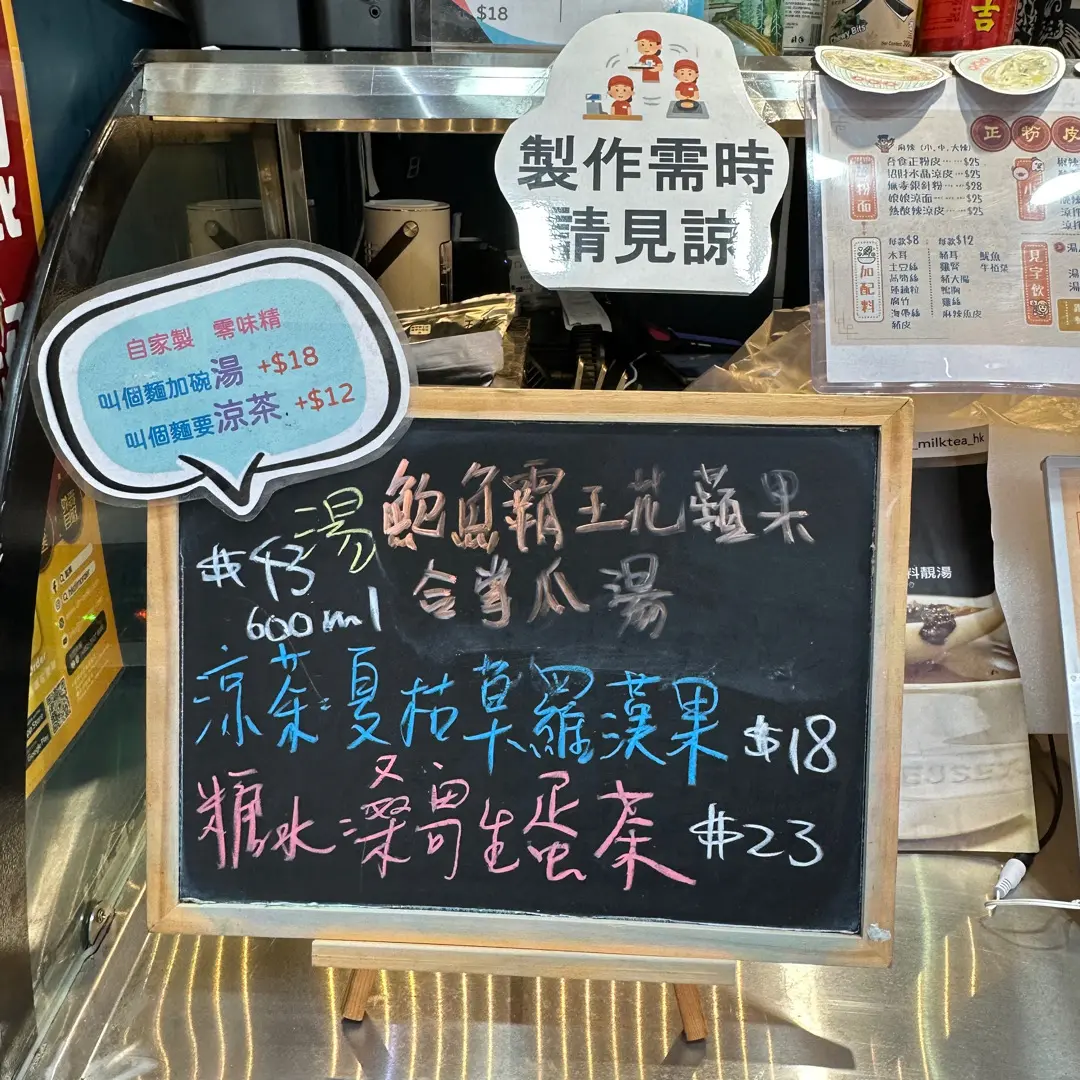 $18
製作需時
請見諒
自家製 零味精
叫個麵加碗湯 +$18
叫個麵要涼茶 +$12
湯 鮑魚霸王花蘋果
$43
合掌瓜湯
600ml
涼茶:夏枯草羅漢果 $18
糖水:桑寄生蛋茶 $23
正粉皮
麻辣 (小、中、大辣)
粉面
招財水晶涼皮 $25
娘娘涼面 $25
熱酸辣涼皮 $25
加配料
每款$8
木耳
土豆絲
腐竹
海帶絲
豬皮
每款$12
豬耳
雞腎
豬大腸
鴨胸
雞絲
麻辣魚皮
魷魚
牛柏葉
見字飲
_milktea_hk
料靚湯
吉